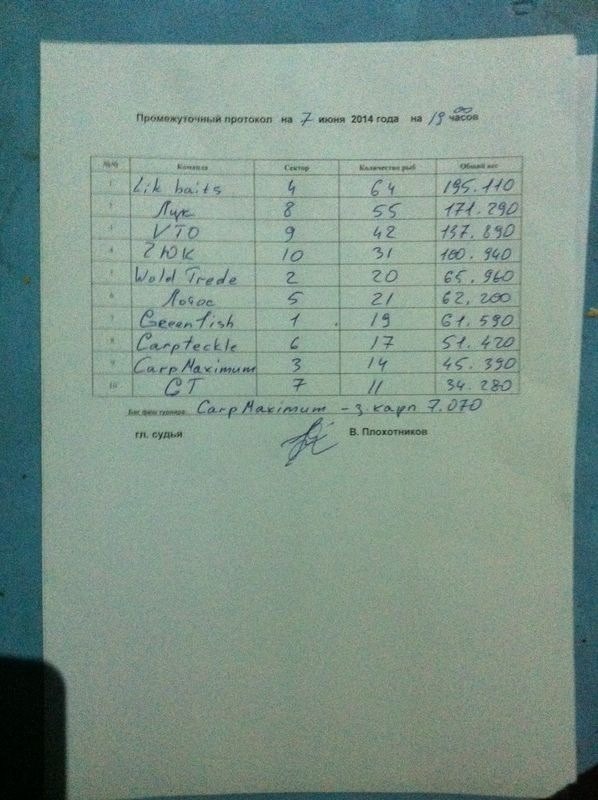 Промежуточный протокол на 7 июня 2014 года на 19 00 часов
№№ Команда Сектор Количество рыб Общий вес
1 Lik baits 4 64 195.110
2 Лцк 8 55 171.290
3 VTO 9 42 137.890
4 2ЮК 10 31 100.940
5 Wold Trede 2 20 65.960
6 Лотос 5 21 62.200
7 Greenfish 1 19 61.590
8 Carpteckle 6 17 51.420
9 Carp Maximum 3 14 45.390
10 GT 7 11 34.280
Биг фиш турнира: Carp Maximum - з.карп 7.070
гл. судья В. Плохотников